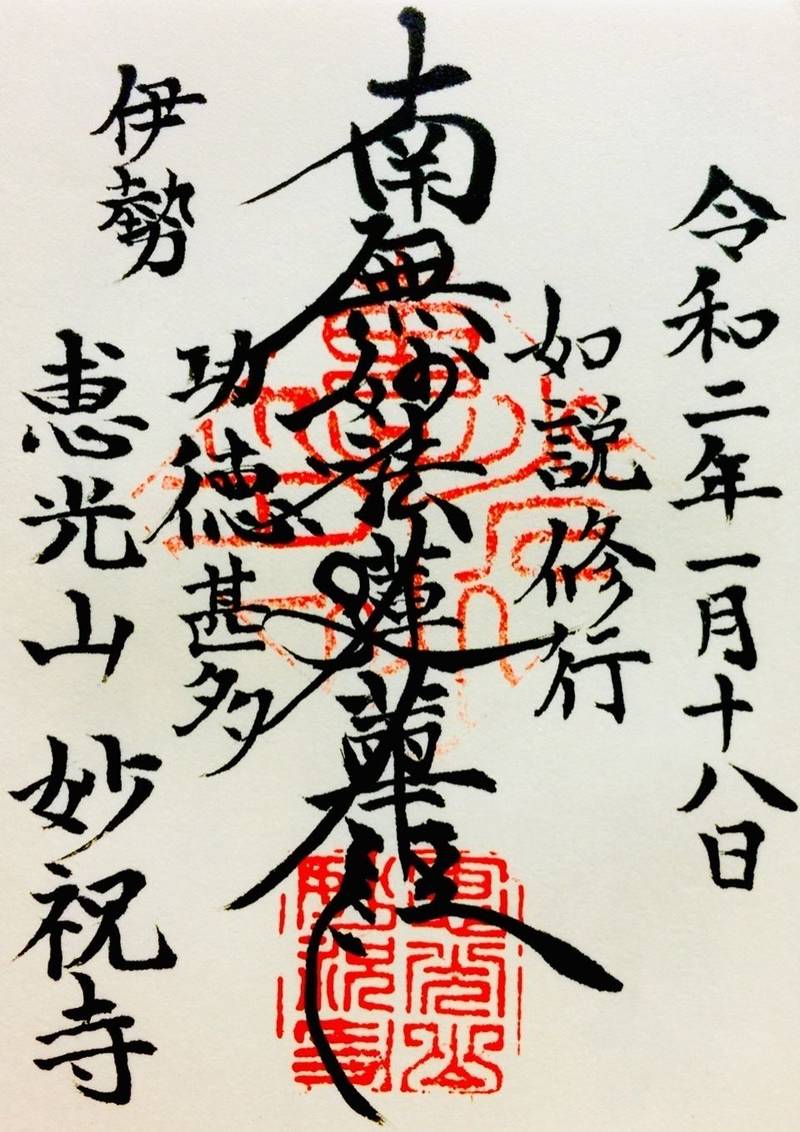 令和二年一月十八日
如説修行
南無妙法蓮華経
功徳甚多
伊勢
恵光山 妙祝寺